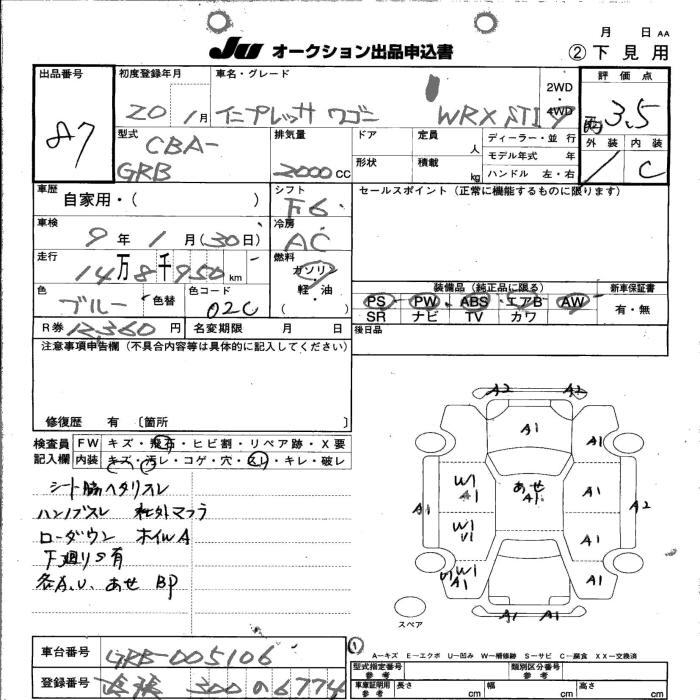 月 日 AA
JU オークション出品申込書
②下見用
出品番号 初度登録年月 車名・グレード 評価点
87
20 1月 インプレッサ ワゴン WRX STI
2WD
4WD
3.5
型式 排気量 ドア 定員 人 ディーラー・並行 外装 内装
CBA-
GRB
2000 CC
形状 積載 kg モデル年式 年
ハンドル 左・右
C
車歴 シフト セールスポイント(正常に機能するものに限ります)
自家用・( )
F6
車検 冷房
9年1月(30日)
AC
走行 燃料
14万8千950km
ガソリン
軽・油
( )
装備品(純正品に限る) 新車保証書
PS PW ABS エアB AW
SR ナビ TV カワ
有・無
色 色替 色コード
ブルー 02C
R券 12,360円 名変期限 月 日
後日品
注意事項申告欄(不具合内容等は具体的に記入してください)
修復歴 有 〔箇所 〕
検査員 FW キズ・飛石・ヒビ割・リペア跡・X要
記入欄 内装 キズ・汚レ・コゲ・穴・スレ・キレ・破レ
シート脇ヘタリスレ
ハンドルスレ 社外マフラ
ローダウン ホイルA
下廻りS有
各A.U. あせ BP
A2 A2
A1
A1 A1
W1
A1
あせ
A1
A1
A1 A2
W1
U1
A1
W1
U1 A1
A1
A1 A1
スペア
①
A－キズ E－エクボ U－凹み W－補修跡 S－サビ C－腐食 XX－交換済
車台番号 GRB-005106
登録番号 300 の 6774
型式指定番号 参考 類別区分番号 参考
車庫証明用 参考 長さ cm 幅 cm 高さ cm